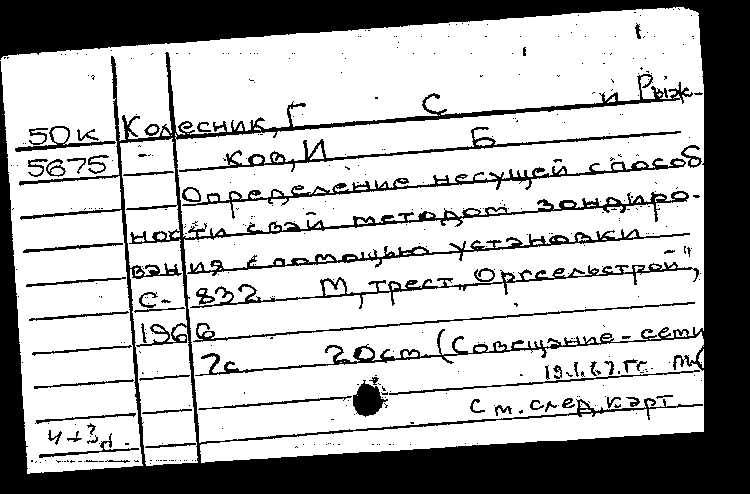 50к Колесник, Г С и Рыж-
5675 - ков, И Б
Определение несущей способ
ности свай методом зондиро-
вания с помощью установки
С-832. М, трест „Оргсельстрой",
1966
7с. 20см. (Совещание-семи
см. след. карт.